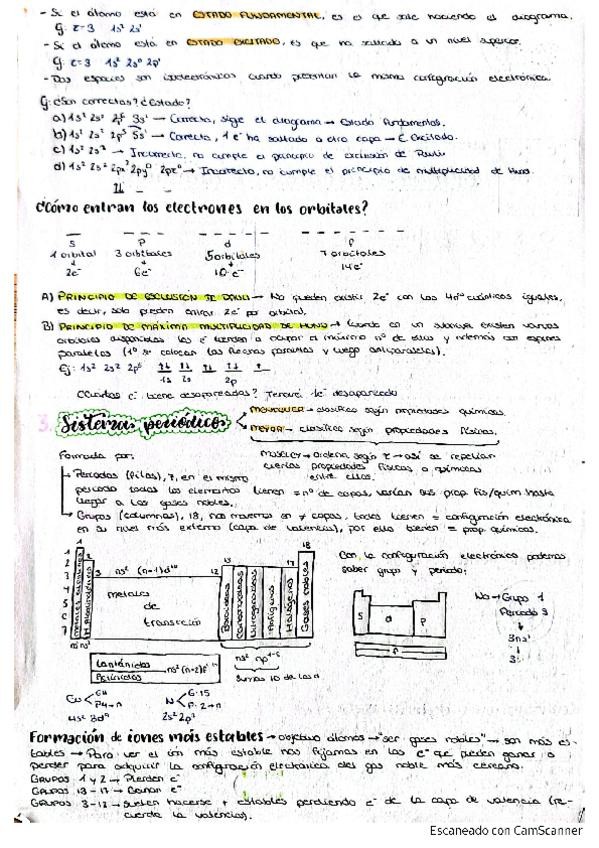 - Si el átomo está en ESTADO FUNDAMENTAL, es el que sale haciendo el diagrama.
Ej: Z=3 1s² 2s¹
- Si el átomo está en ESTADO EXCITADO, es que ha saltado a un nivel superior.
Ej: Z=3 1s² 2s⁰ 2p¹
- Dos especies son isoelectrónicas cuando presentan la misma configuración electrónica.
Ej: ¿Son correctas? ¿Estado?
a) 1s² 2s² 2p⁶ 3s¹ → Correcta, sigue el diagrama → Estado fundamental.
b) 1s² 2s² 2p⁵ 3s¹ → Correcta, 1 e⁻ ha saltado a otra capa → E. Excitado.
c) 1s² 2s³ → Incorrecta, no cumple el principio de exclusión de Pauli.
d) 1s² 2s² 2px² 2py⁰ 2pz⁰ → Incorrecta, no cumple el principio de multiplicidad de Hund.
¿Cómo entran los electrones en los orbitales?
s p d f
1 orbital 3 orbitales 5 orbitales 7 orbitales
2e⁻ 6e⁻ 10 e⁻ 14e⁻
A) PRINCIPIO DE EXCLUSIÓN DE PAULI → No pueden existir 2e⁻ con los 4 nº cuánticos iguales,
es decir, solo pueden entrar 2e⁻ por orbital.
B) PRINCIPIO DE MÁXIMA MULTIPLICIDAD DE HUND → Cuando en un subnivel existen varios
orbitales disponibles los e⁻ tienden a ocupar el máximo nº de ellos y además con espines
paralelos (1º se colocan las flechas paralelas y luego antiparalelas).
Ej: 1s² 2s² 2p⁵
1s 2s 2p
¿Cuántos e⁻ tiene desapareados? Tendrá 1e⁻ desapareado
3. Sistema periódico
MENDELEIEV → clasificó según propiedades químicas.
MEYER → clasificó según propiedades físicas.
Formado por:
Moseley → ordena según Z → así se repetían
ciertas propiedades físicas o químicas
entre ellos.
Períodos (filas), 7, en el mismo
periodo todos los elementos tienen = nº de capas, varían sus prop. fís/quím hasta
llegar a los gases nobles.
Grupos (columnas), 18, nos movemos en ≠ capas, todos tienen = configuración electrónica
en su nivel más externo (capa de valencia), por ello tienen = prop. químicas.
1 2 3 ns² (n-1)d¹⁰ 12 13 17 18
1 2 3 4 5 6 7
metales alcalinos
metales
de
transición
Boroideos
Carbonoideos
Nitrogenoideos
Anfígenos
Halógenos
Gases nobles
Con la configuración electrónica podemos
saber grupo y periodo:
s d p
f
Na → Grupo 1
Periodo 3
3ns¹
3s¹
Lantánidos
Actínidos
ns² (n-2)f¹⁴
ns² np¹⁻⁶
sumas 10 de los d
N G: 15
P: 2 → n
2s² 2p³
Formación de iones más estables → objetivo átomos → "ser gases nobles" → son más es-
tables → Para ver el ión más estable nos fijamos en los e⁻ que pueden ganar o
perder para adquirir la configuración electrónica del gas noble más cercano.
GRUPOS 1 y 2 → Pierden e⁻
GRUPOS 13-17 → Ganan e⁻
GRUPOS 3-12 → Suelen hacerse + estables perdiendo e⁻ de la capa de valencia (re-
cuerda la valencia).
Escaneado con CamScanner